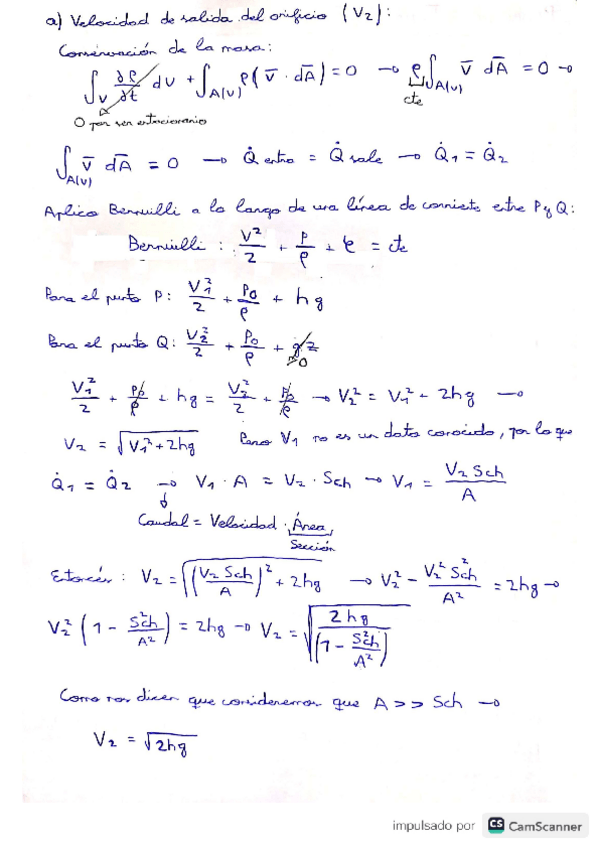 a) Velocidad de salida del orificio (V₂):
Conservación de la masa:
∫_V ∂ρ/∂t dV + ∫_A(V) ρ(v̄ · dĀ) = 0 → ρ ∫_A(V) v̄ dĀ = 0 →
cte
0 por ser estacionario
∫_A(V) v̄ dĀ = 0 → Q̇ entra = Q̇ sale → Q̇₁ = Q̇₂
Aplico Bernuilli a lo largo de una línea de corriente entre P y Q:
Bernuilli : V²/2 + P/ρ + e = cte
Para el punto P: V₁²/2 + P₀/ρ + hg
Para el punto Q: V₂²/2 + P₀/ρ + gz → 0
V₁²/2 + P₀/ρ + hg = V₂²/2 + P₀/ρ → V₂² = V₁² + 2hg →
V₂ = √(V₁² + 2hg) Pero V₁ no es un dato conocido, por lo que
Q̇₁ = Q̇₂ → V₁ · A = V₂ · Sch → V₁ = V₂ Sch / A
Caudal = Velocidad · Área
Sección
Entonces : V₂ = √((V₂ Sch / A)² + 2hg) → V₂² - V₂² S²ch / A² = 2hg →
V₂² (1 - S²ch / A²) = 2hg → V₂ = √(2hg / (1 - S²ch / A²))
Como nos dicen que consideremos que A >> Sch →
V₂ = √2hg
impulsado por CS CamScanner